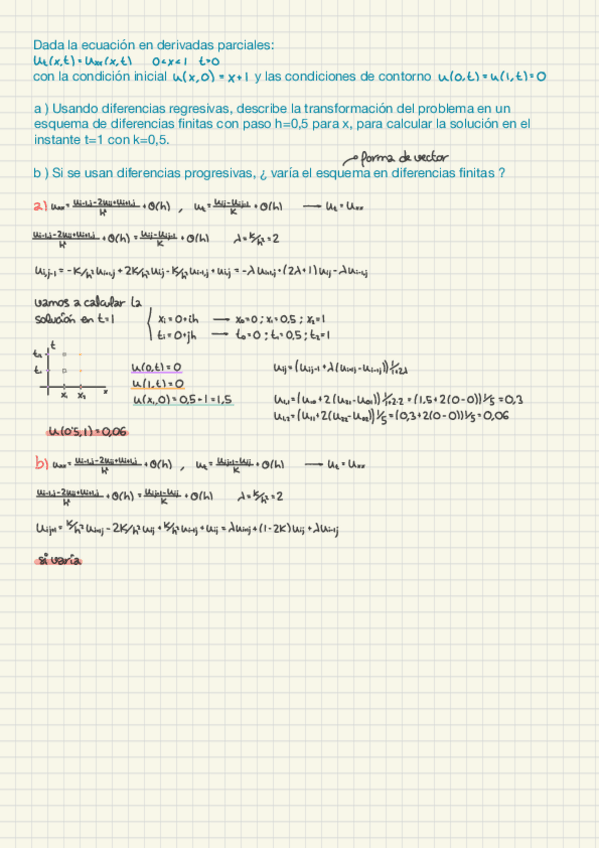 Dada la ecuación en derivadas parciales:
uₜ(x,t) = uₓₓ(x,t) 0<x<1 t>0
con la condición inicial u(x,0) = x+1 y las condiciones de contorno u(0,t) = u(1,t) = 0
a ) Usando diferencias regresivas, describe la transformación del problema en un
esquema de diferencias finitas con paso h=0,5 para x, para calcular la solución en el
instante t=1 con k=0,5.
forma de vector
b ) Si se usan diferencias progresivas, ¿ varía el esquema en diferencias finitas ?
a) uₓₓ = (ui-1,j - 2uij + ui+1,j)/h² + O(h) , uₜ = (uij - uij-1)/k + O(h) → uₜ = uₓₓ
(ui-1,j - 2uij + ui+1,j)/h² + O(h) = (uij - uij-1)/k + O(h) λ = k/h² = 2
ui,j-1 = -k/h² ui+1,j + 2k/h² uij - k/h² ui-1,j + uij = -λui+1,j + (2λ+1)uij - λui-1,j
vamos a calcular la
solución en t=1
xi = 0+ih → x0=0 ; x1=0,5 ; x2=1
ti = 0+jh → t0=0 ; t1=0,5 ; t2=1
t
t2
t1
x1 x2 x
u(0,t) = 0
u(1,t) = 0
u(x1,0) = 0,5+1 = 1,5
uij = (uij-1 + λ(ui+1,j - ui-1,j)) 1/1+2λ
u1,1 = (u10 + 2(u21 - u01)) 1/1+2·2 = (1,5 + 2(0-0)) 1/5 = 0,3
u1,2 = (u11 + 2(u22 - u02)) 1/5 = (0,3 + 2(0-0)) 1/5 = 0,06
u(0'5,1) = 0,06
b) uₓₓ = (ui-1,j - 2uij + ui+1,j)/h² + O(h) , uₜ = (uij+1 - uij)/k + O(h) → uₜ = uₓₓ
(ui-1,j - 2uij + ui+1,j)/h² + O(h) = (uij+1 - uij)/k + O(h) λ = k/h² = 2
uij+1 = k/h² ui+1,j - 2k/h² uij + k/h² ui-1,j + uij = λui+1,j + (1-2k)uij + λui-1,j
si varia